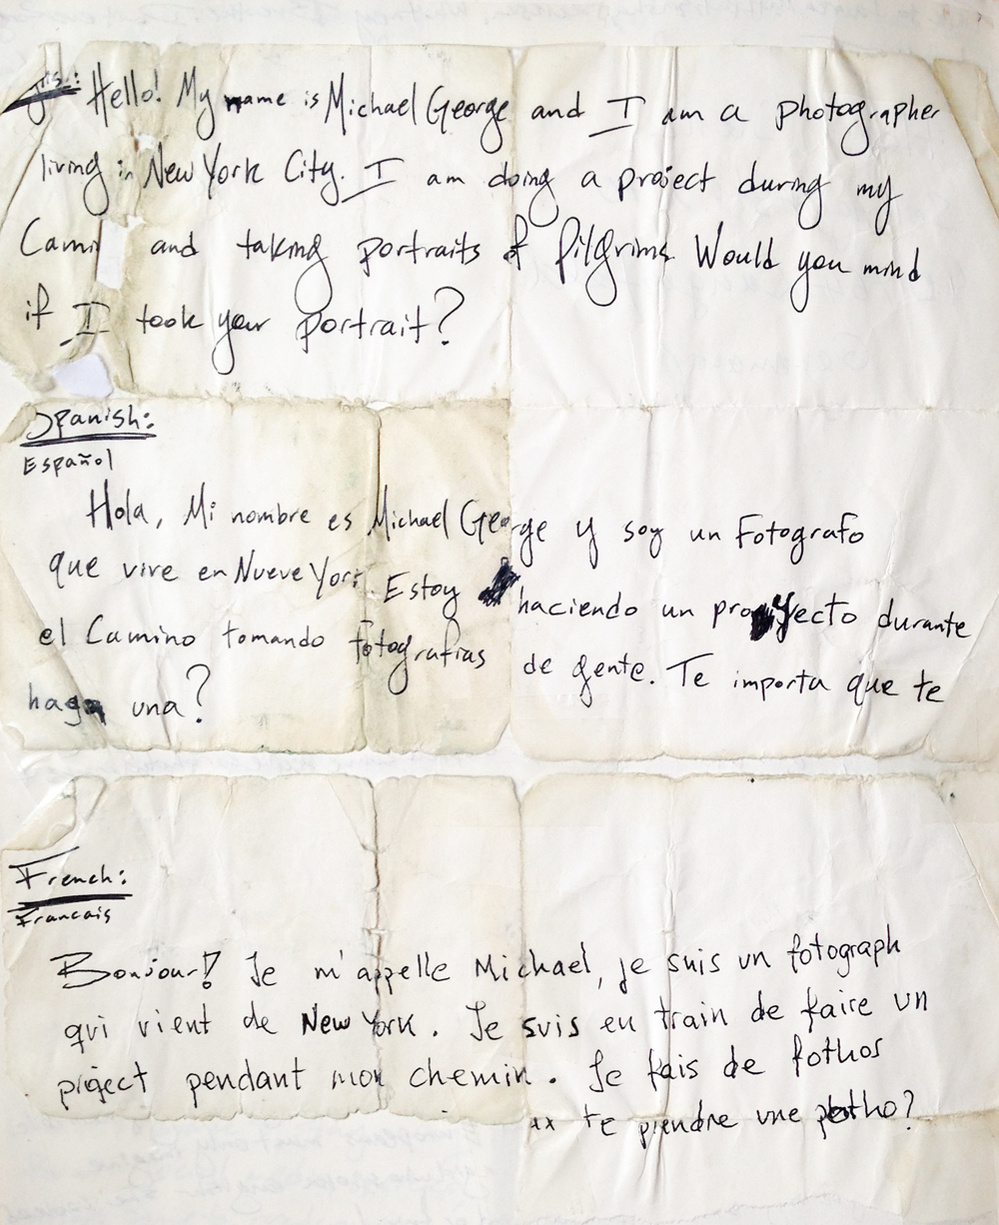 Hello! My name is Michael George and I am a photographer
living in New York City. I am doing a project during my
Cami and taking portraits of Pilgrims Would you mind
if I took your portrait?
Spanish:
Español
Hola, Mi nombre es Michael George y soy un Fotografo
que vive en Nueve York Estoy haciendo un proyecto durante
el Camino tomando fotografias de gente. Te importa que te
haga una?
French:
Francais
Bonjour! Je m'appelle Michael, je suis un fotograph
qui vient de New York. Je suis en train de faire un
project pendant mon chemin. Je fais de fothos
te prendre une photho?